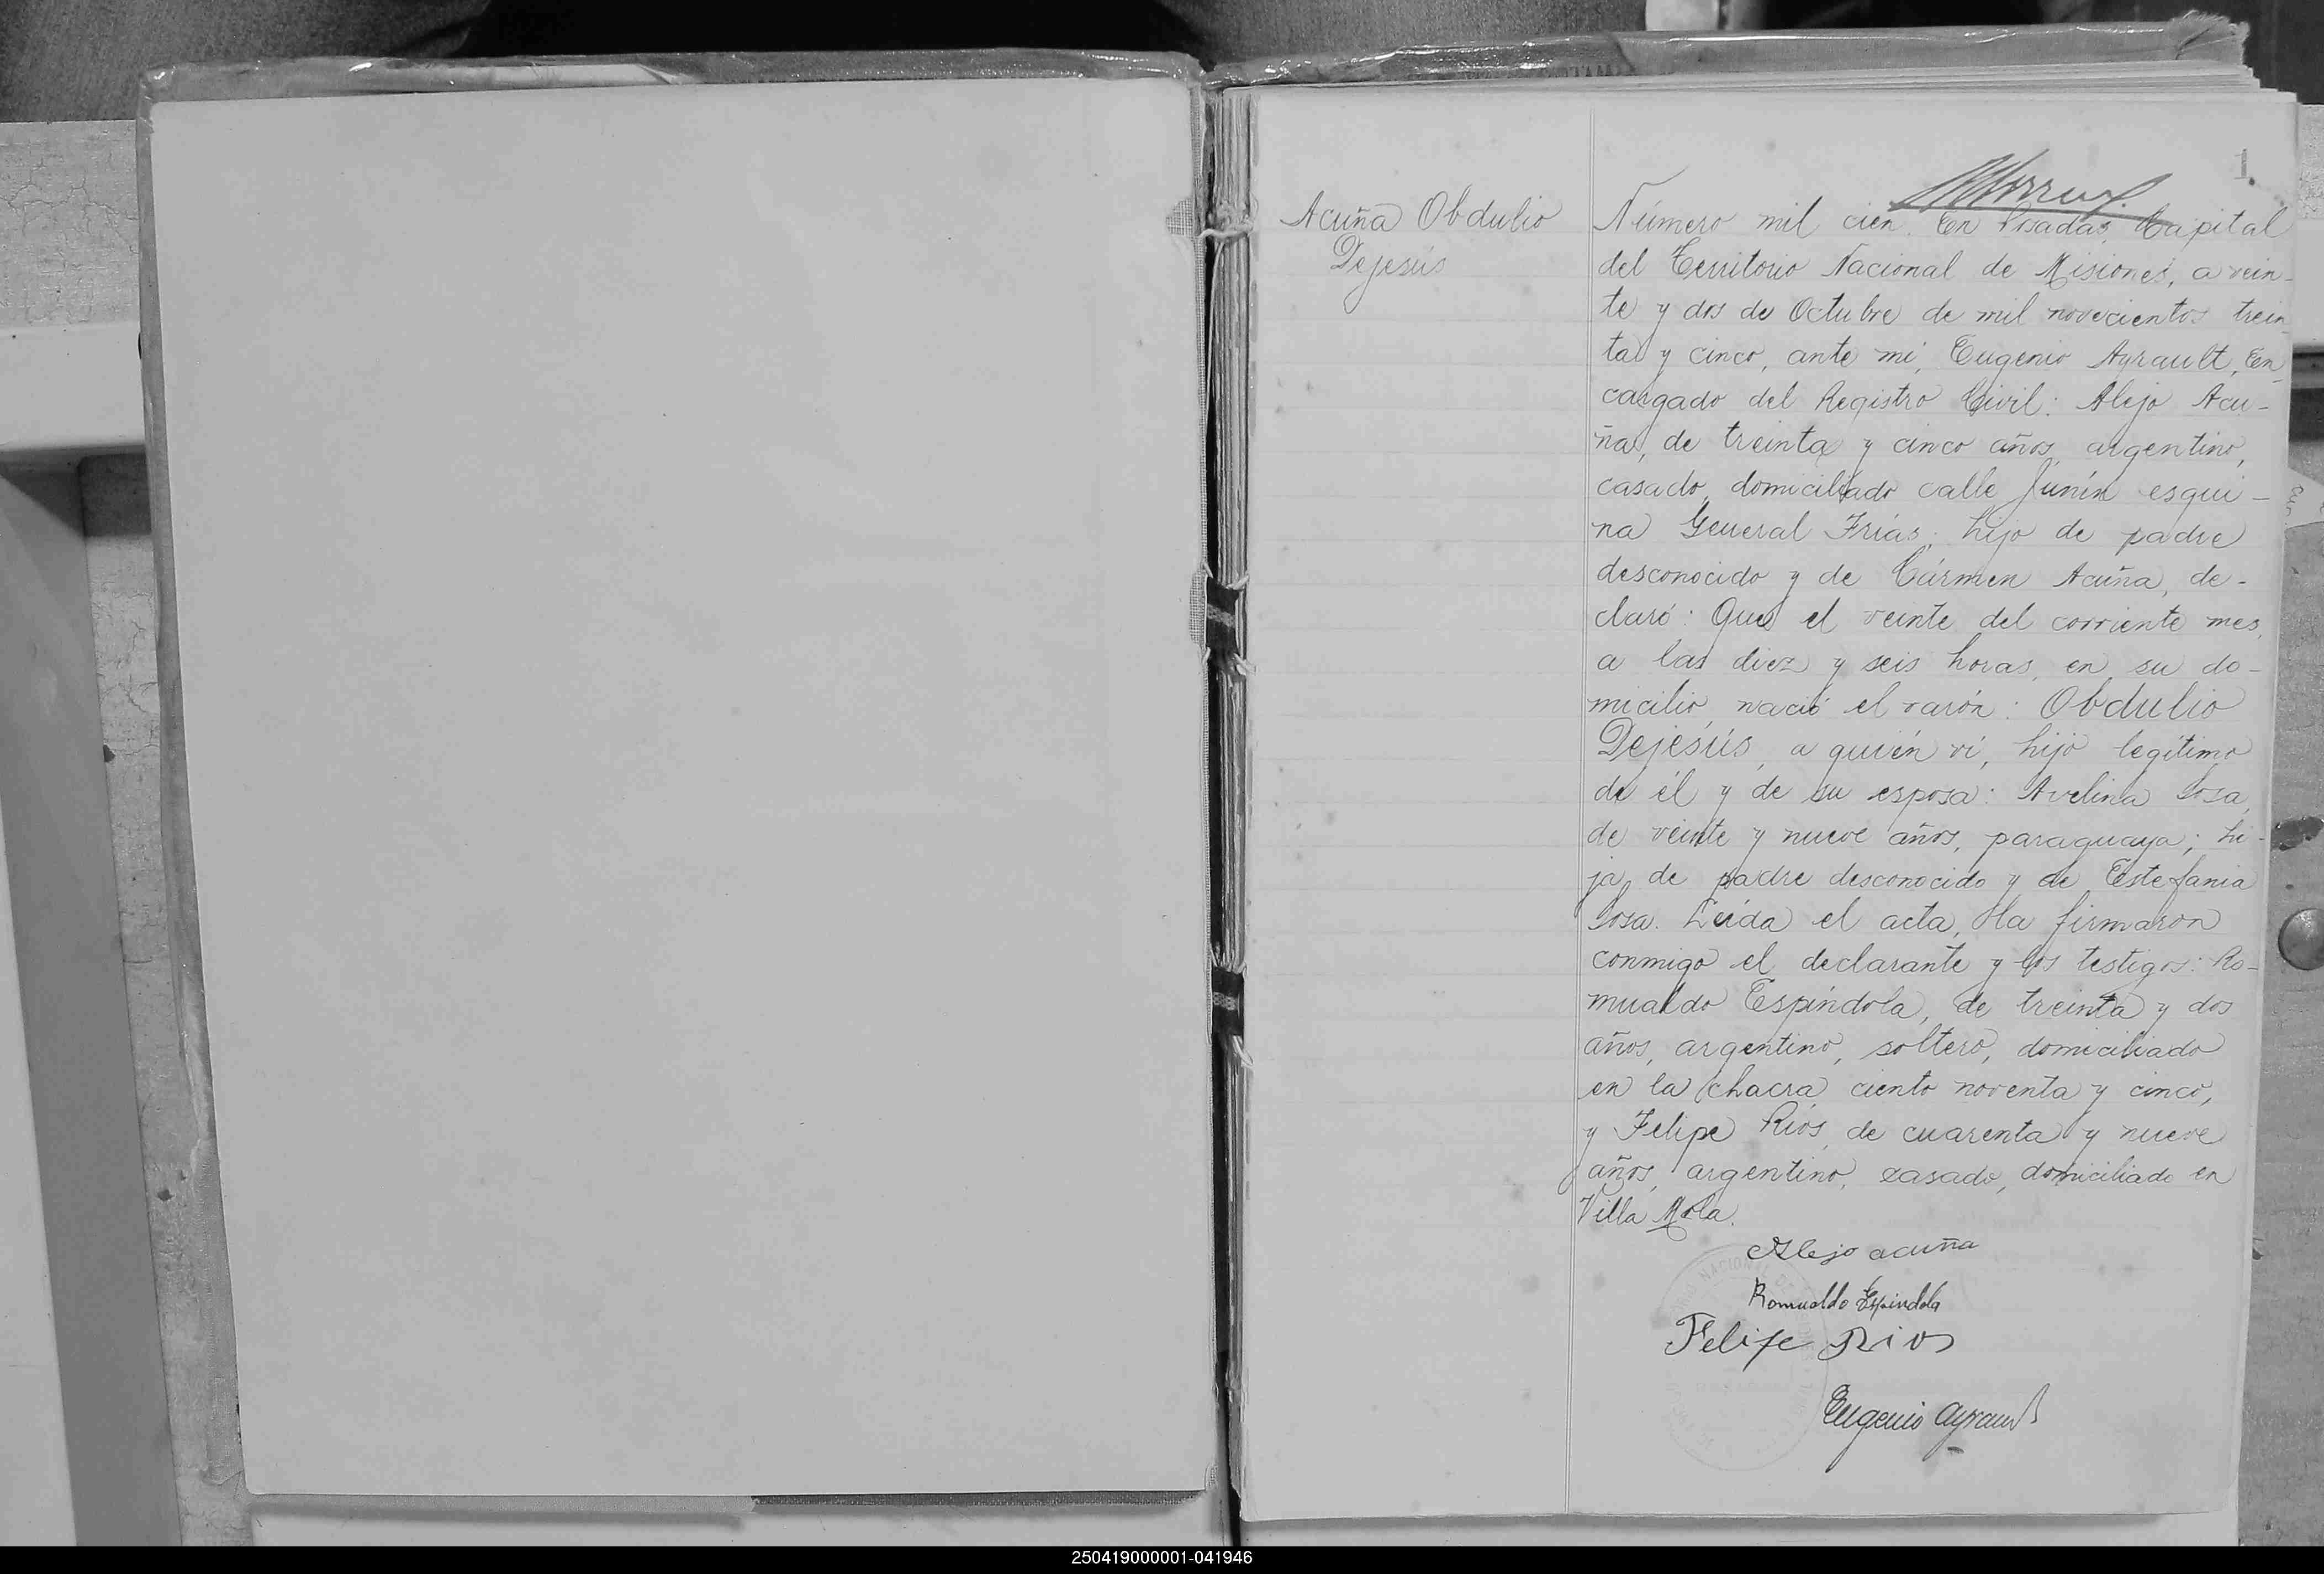 1.
Acuña Obdulio
Dejesús
Número mil cien. En Posadas, Capital
del Territorio Nacional de Misiones, a vein-
te y dos de Octubre de mil novecientos trein
ta y cinco, ante mi, Eugenio Ayrault, En
cargado del Registro Civil: Alejo Acu-
ña, de treinta y cinco años, argentino,
casado, domiciliado calle Junín esqui-
na General Frías; hijo de padre
desconocido y de Cármen Acuña, de-
claró: Que el veinte del corriente mes,
a las diez y seis horas, en su do-
micilio, nació el varón: Obdulio
Dejesús, a quién ví, hijo legítimo
de él y de su esposa: Avelina Sosa,
de veinte y nueve años, paraguaya; hi-
ja de padre desconocido y de Estefania
Sosa. Leída el acta, la firmaron
conmigo el declarante y los testigos: Ro-
mualdo Espíndola, de treinta y dos
años, argentino, soltero, domiciliado
en la chacra ciento noventa y cinco,
y Felipe Ríos, de cuarenta y nueve
años, argentino, casado, domiciliado en
Villa Mola.
Alejo acuña
Romualdo Espindola
Felipe Rios
Eugenio Ayrault
250419000001-041946